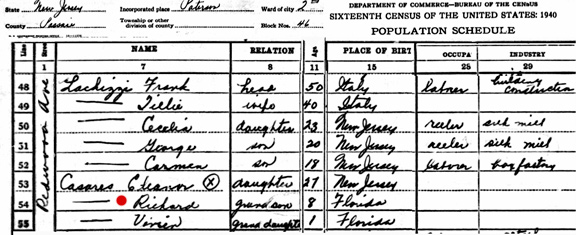 State New Jersey Incorporated place Paterson Ward of city 2nd DEPARTMENT OF COMMERCE—BUREAU OF THE CENSUS
County Passaic Township or other division of county Block Nos. 46 SIXTEENTH CENSUS OF THE UNITED STATES: 1940
POPULATION SCHEDULE
Line NAME RELATION Age PLACE OF BIRT OCCUPA INDUSTRY
1 7 8 11 15 28 29
Redwood Ave
48 Frank head 50 Italy laborer building construction
49 —— Tillie wife 40 Italy
50 —— Cecelia daughter 23 New Jersey reeler silk mill
51 —— George son 20 New Jersey reeler silk mill
52 —— Carmen son 18 New Jersey laborer factory
53 Casares Eleanor X daughter 27 New Jersey
54 —— Richard grandson 8 Florida
55 —— grand daught 1 Florida